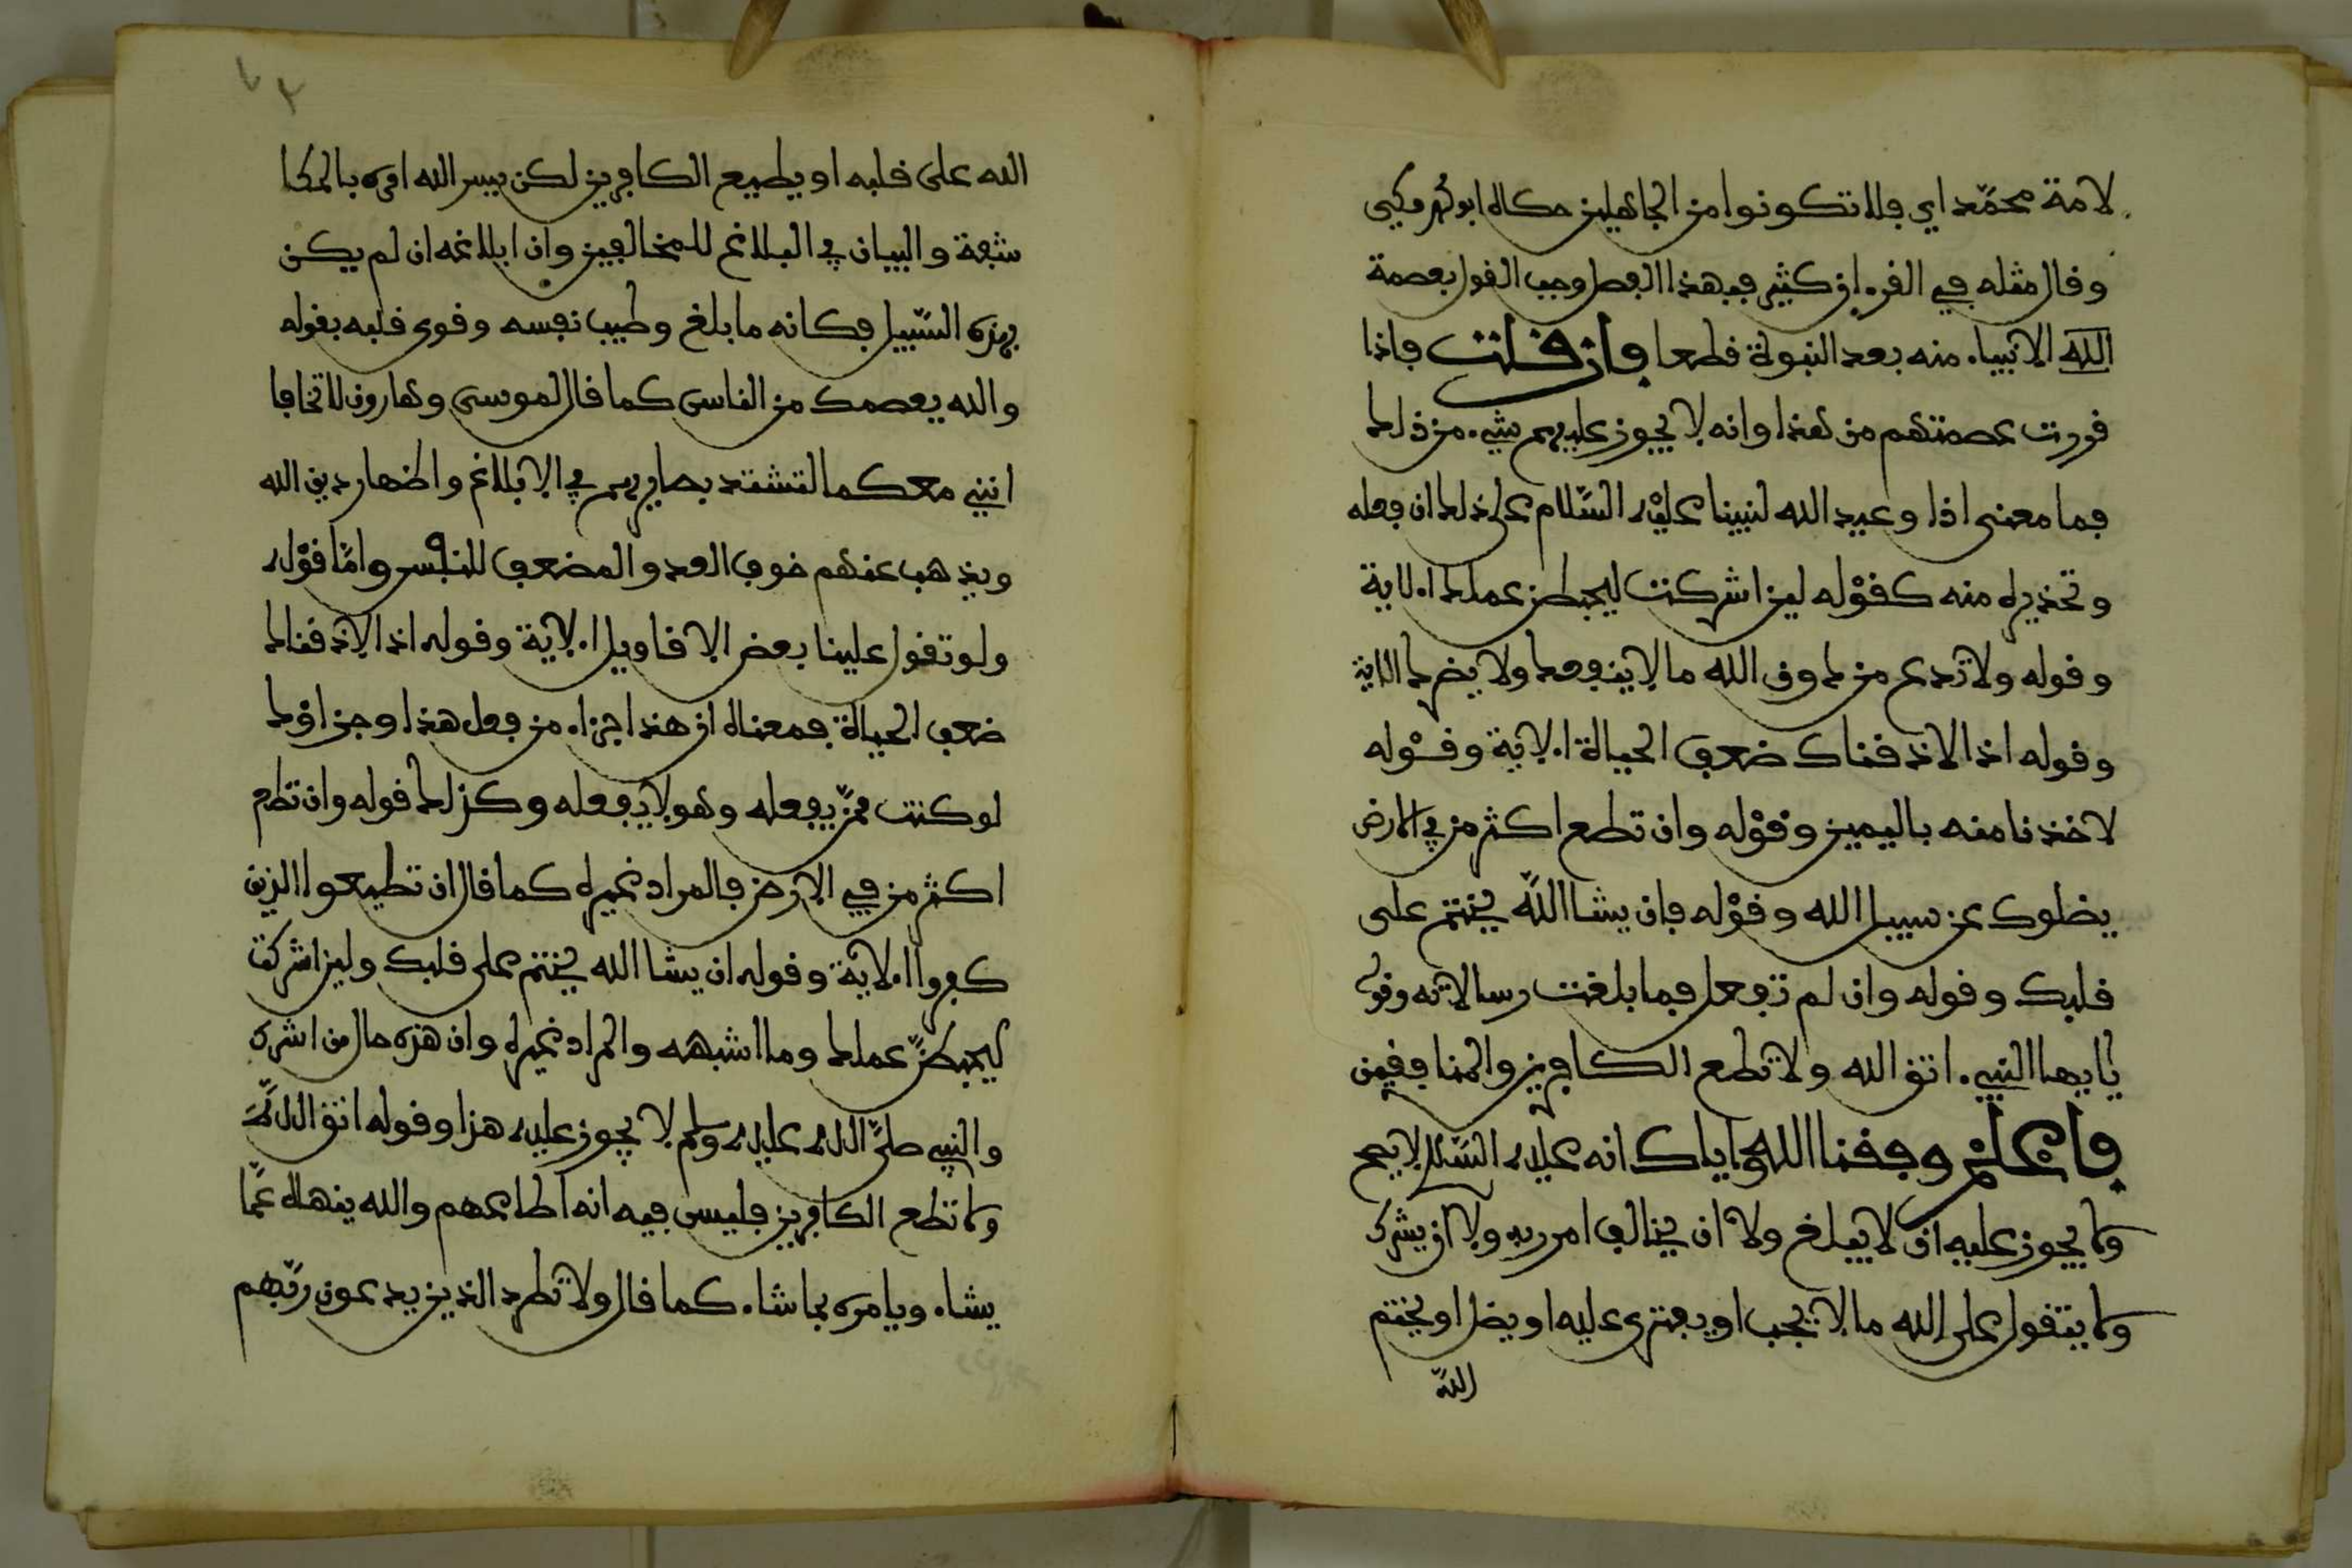 لامة محمد اي فلا تكونوا من الجاهلين حكاه ابو محمد مكي
وقال مثله في القرءان كثير فبهذا الفضل وجب القول بعصمة
الله الانبياء منه بعد النبوة قطعا فان قلت فاذا
قررت عصمتهم من هذا وانه لا يجوز عليهم شيء من ذلك
فما معنى اذا وعيد الله لنبينا عليه السلام على ذلك ان فعله
وتحذيره منه كقوله لين اشركت ليحبطن عملك الاية
وقوله ولا تدع من دون الله ما لا ينفعك ولا يضرك الاية
وقوله اذا لاذقناك ضعف الحياة الاية وقوله
لاخذنا منه باليمين وقوله وان تطع اكثر من في الارض
يضلوك عن سبيل الله وقوله فان يشا الله يختم على
قلبك وقوله وان لم تفعل فما بلغت رسالاته وقوله
يا ايها النبيء اتق الله ولا تطع الكافرين والمنافقين
فاعلم وفقنا الله واياك انه عليه السلام لا يصح
ولا يجوز عليه ان لا يبلغ ولا ان يخالف امر ربه ولا ان يشرك
ولا يتقول على الله ما لا يجب او يفتري عليه او يضل او يختم
الله
٧٣
الله على قلبه او يطيع الكافرين لكن يسر الله امره بالمكا
شفة والبيان في البلاغ للمخالفين وان ابلاغه ان لم يكن
بهذه السبيل فكانه ما بلغ وطيب نفسه وقوى قلبه بقوله
والله يعصمك من الناس كما قال لموسى وهارون لا تخافا
انني معكما لتشتد بصايرهم في الابلاغ واظهار دين الله
ويذهب عنهم خوف العدو المضعف للنفس واما قوله
ولو تقول علينا بعض الاقاويل الاية وقوله اذا لاذقناك
ضعف الحياة فمعناه ان هذا جزاء من فعل هذا وجزاؤك
لو كنت ممن يفعله وهو لا يفعله وكذلك قوله وان تطع
اكثر من في الارض فالمراد غيره كما قال ان تطيعوا الذين
كفروا الاية وقوله ان يشا الله يختم على قلبك ولين اشركت
ليحبطن عملك وما اشبهه والمراد غيره وان هذه حال من اشرك
والنبي صلى الله عليه وسلم لا يجوز عليه هذا وقوله اتق الله
ولا تطع الكافرين فليس فيه انه اطاعهم والله ينهاه عما
يشاء ويامره بما شاء كما قال ولا تطرد الذين يدعون ربهم